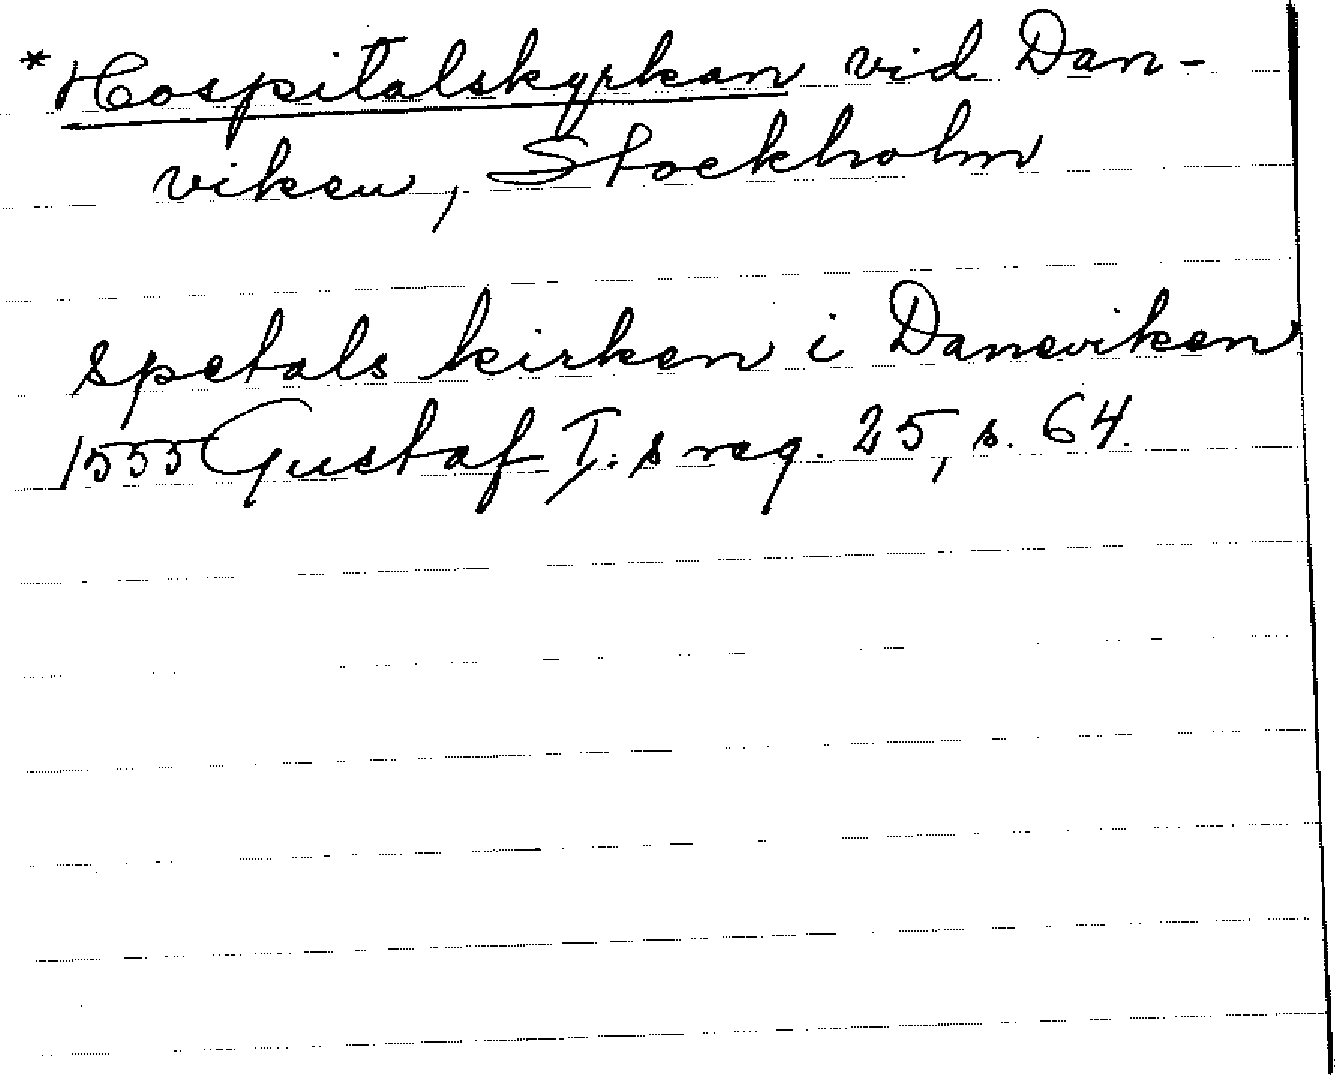 * Hospitalskyrkan vid Dan-
viken, Stockholm
spetals kirken i Daneviken
1555 Gustaf I:s reg. 25, s. 64.